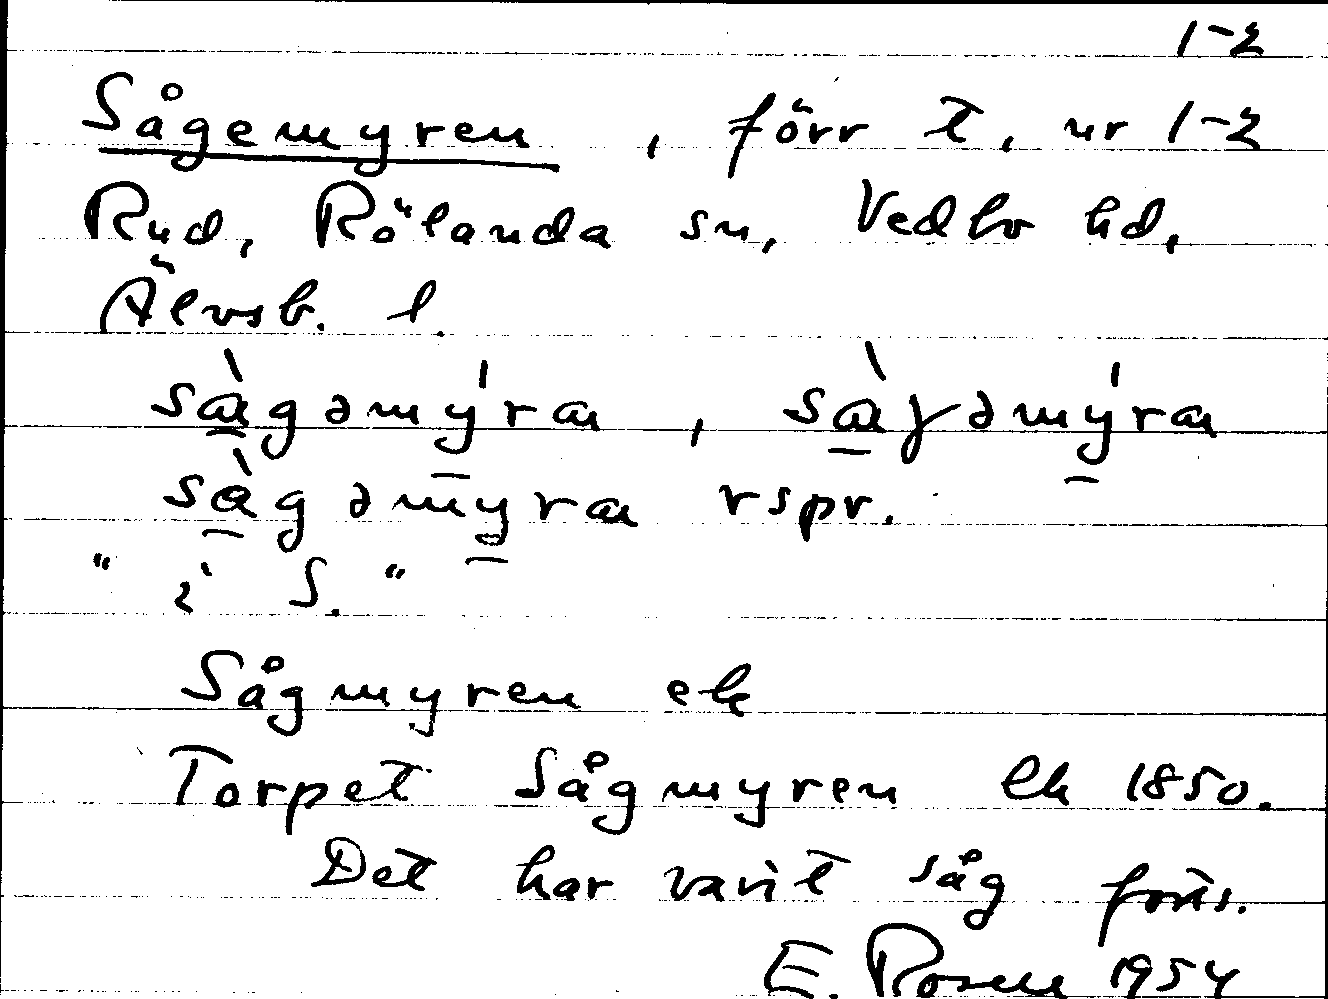 1-2
Sågemyren, förr t, nr 1-2
Rud, Rölanda sn, Vedbo hd,
Älvsb. l.
sàgəmýra, sàɣəmýra
sàgəmyra rspr.
" i S. "
Sågmyren ek
Torpet Sågmyren Ek 1850.
Det har varit såg forts.
E. Rosell 1954